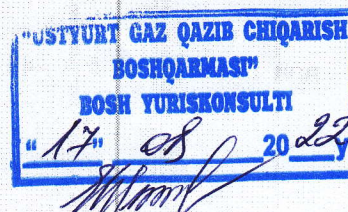 "USTYURT GAZ QAZIB CHIQARISH
BOSHQARMASI"
BOSH YURISKONSULTI
"17" 08 2022 y